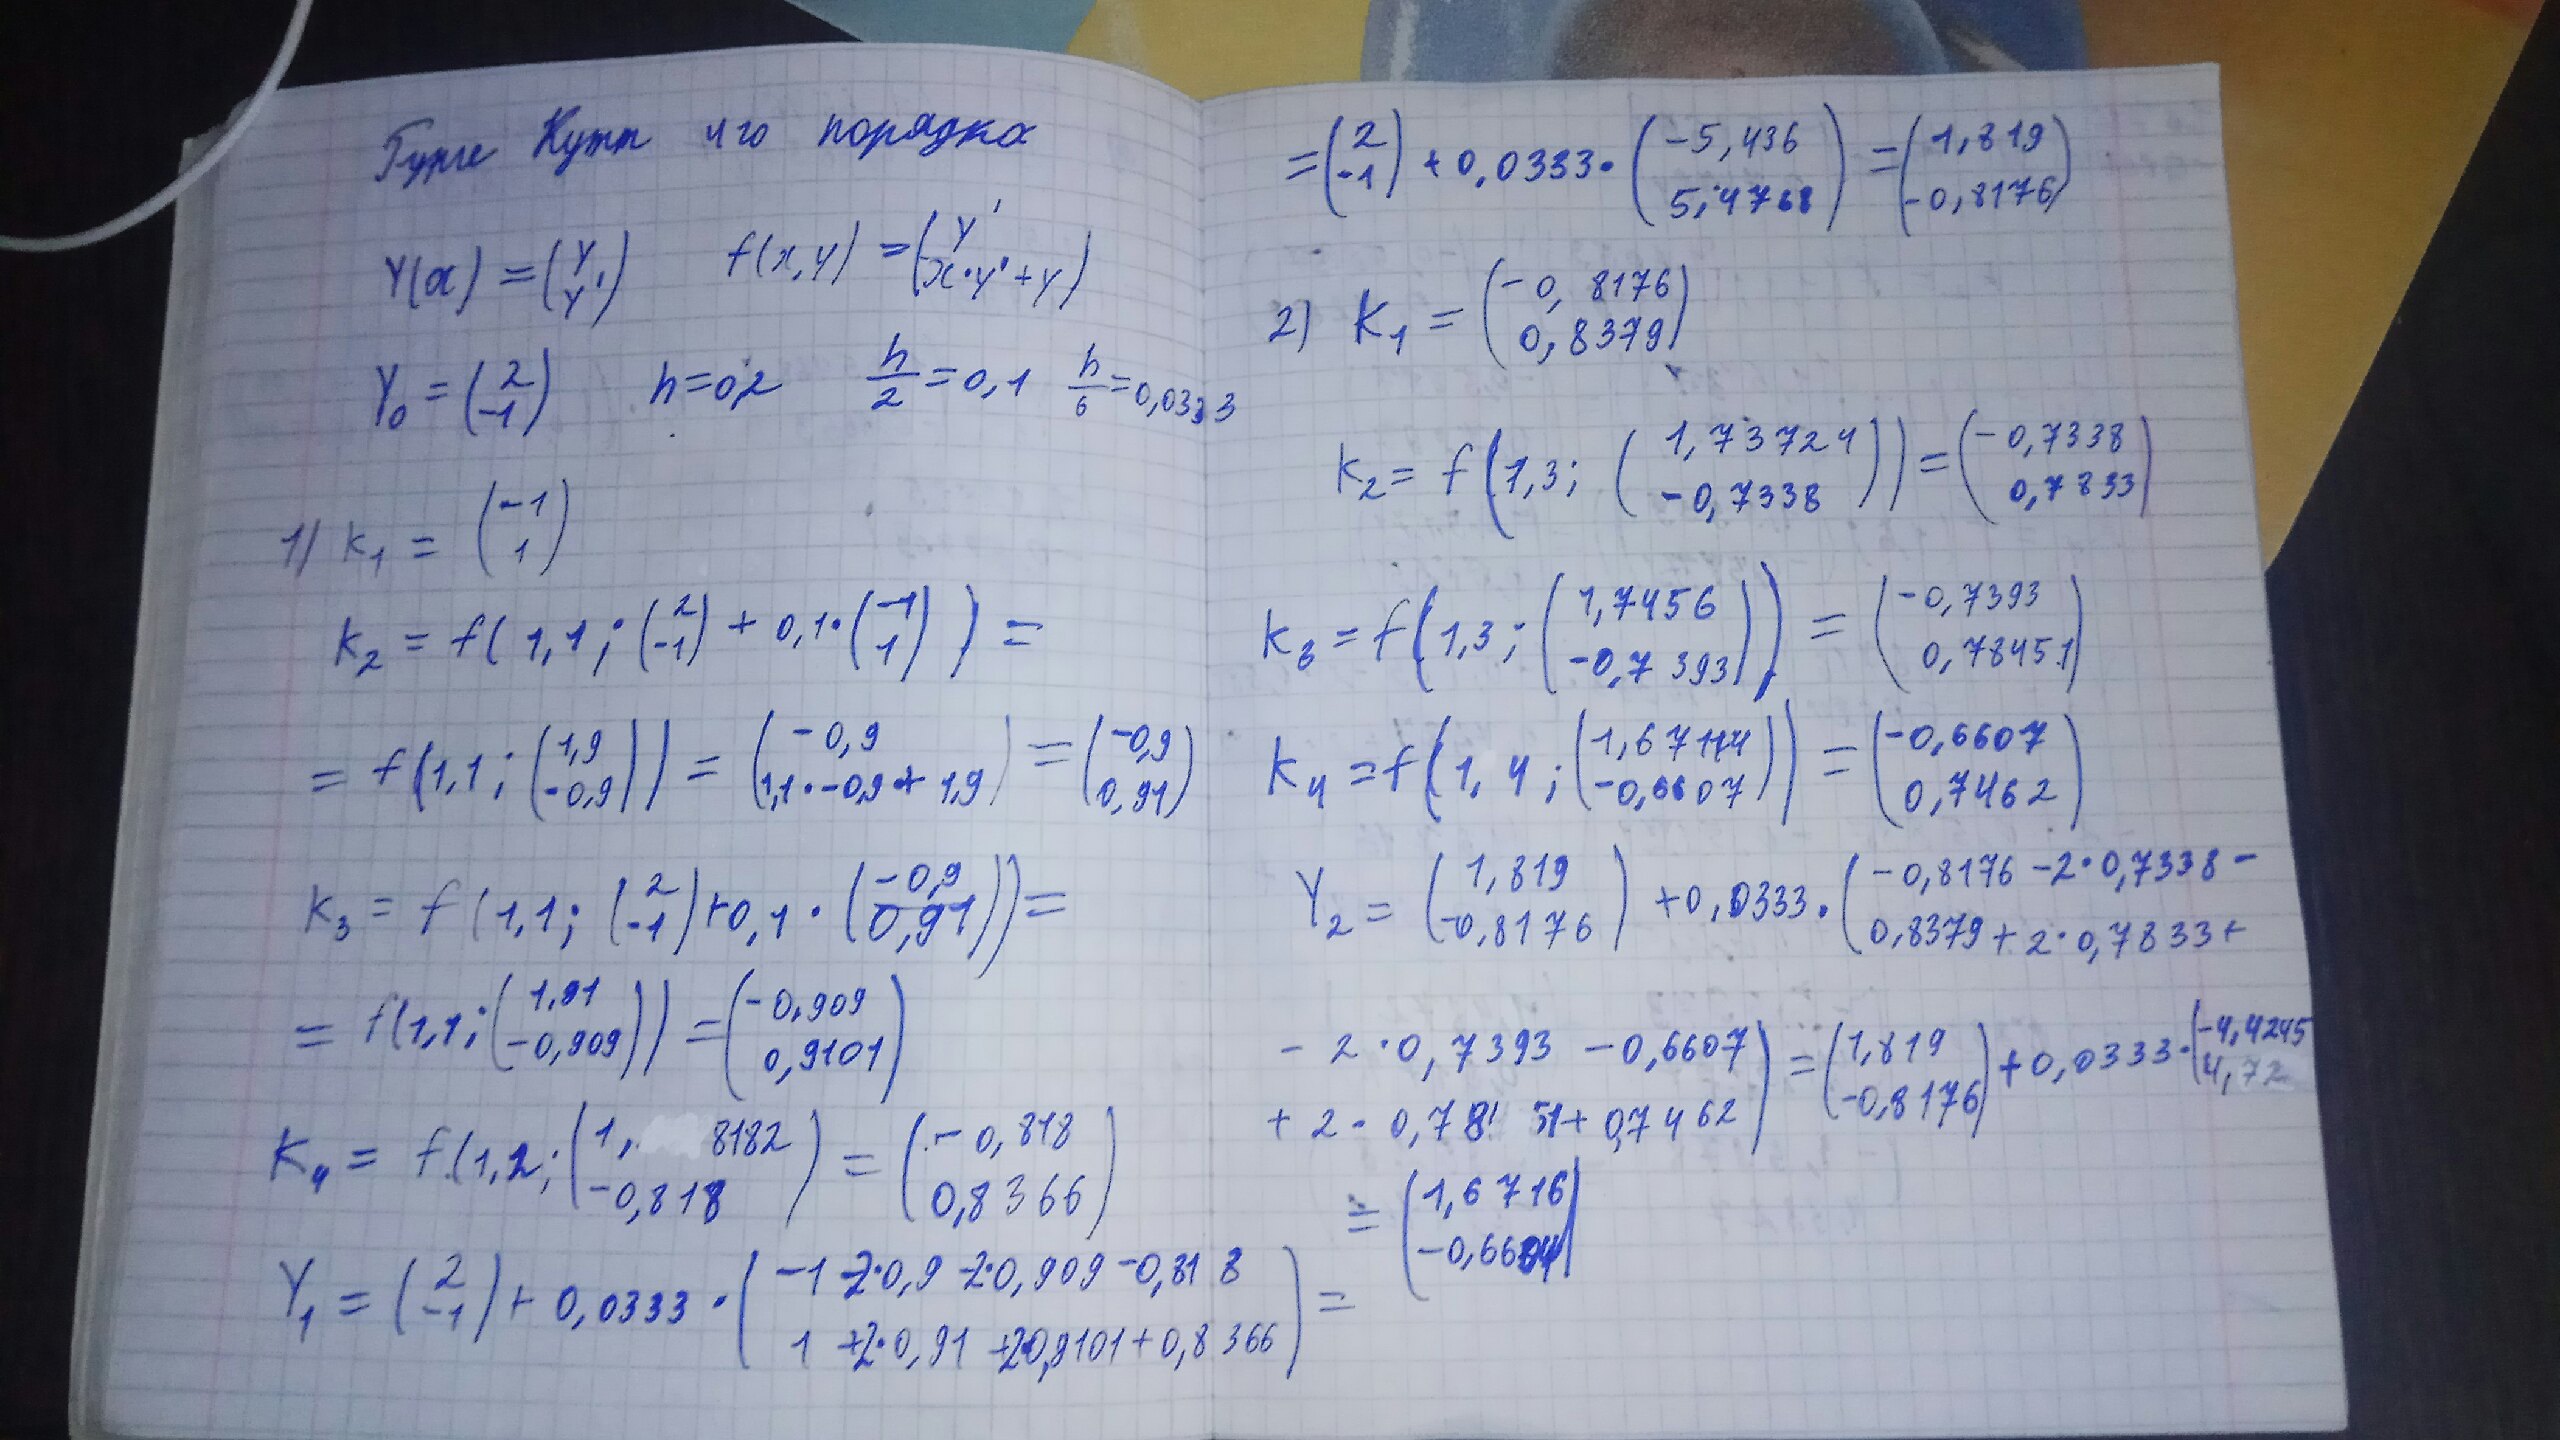 Рунге Кутт 4го порядка
Y(x) = (y y') f(x,y) = (y' x·y'+y)
Y₀ = (2 -1) h=0,2 h/2=0,1 h/6=0,0333
1) k₁ = (-1 1)
k₂ = f(1,1; (2 -1) + 0,1·(-1 1)) =
= f(1,1; (1,9 -0,9)) = (-0,9 1,1·-0,9+1,9) = (-0,9 0,91)
k₃ = f(1,1; (2 -1)+0,1·(-0,9 0,91)) =
= f(1,1; (1,91 -0,909)) = (-0,909 0,9101)
k₄ = f(1,2; (1,8182 -0,818) = (-0,818 0,8366)
Y₁ = (2 -1) + 0,0333·(-1 -2·0,9 -2·0,909 -0,818 1 +2·0,91 +2·0,9101+0,8366) =
= (2 -1) + 0,0333·(-5,436 5,4768) = (1,819 -0,8176)
2) k₁ = (-0,8176 0,8379)
k₂ = f(1,3; (1,73724 -0,7338)) = (-0,7338 0,7833)
k₃ = f(1,3; (1,7456 -0,7393)) = (-0,7393 0,78451)
k₄ = f(1,4; (1,67114 -0,6607)) = (-0,6607 0,7462)
Y₂ = (1,819 -0,8176) + 0,0333·(-0,8176 -2·0,7338 - 0,8379+2·0,7833+
- 2·0,7393 -0,6607 + 2·0,78 51+0,7462) = (1,819 -0,8176) +0,0333·(-4,4245 4,72
= (1,6716 -0,6604)